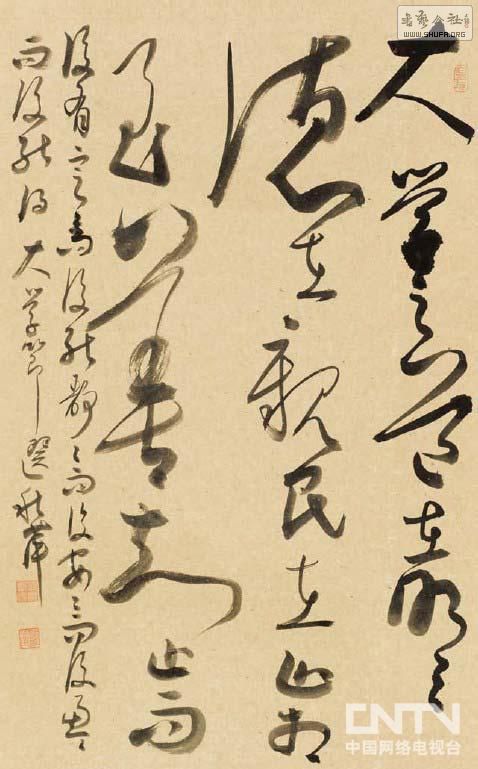 書藝公社
WWW.SHUFA.ORG
大學之道在明〻
德在親民在止於
至善知止而
後有定而後能靜〻而後安〻而後慮〻
而後能得 大學節選 秋萍
CNTV
中国网络电视台